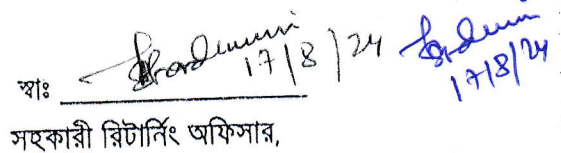 17/8/24
17/8/24
স্বাঃ
সহকারী রিটার্নিং অফিসার,